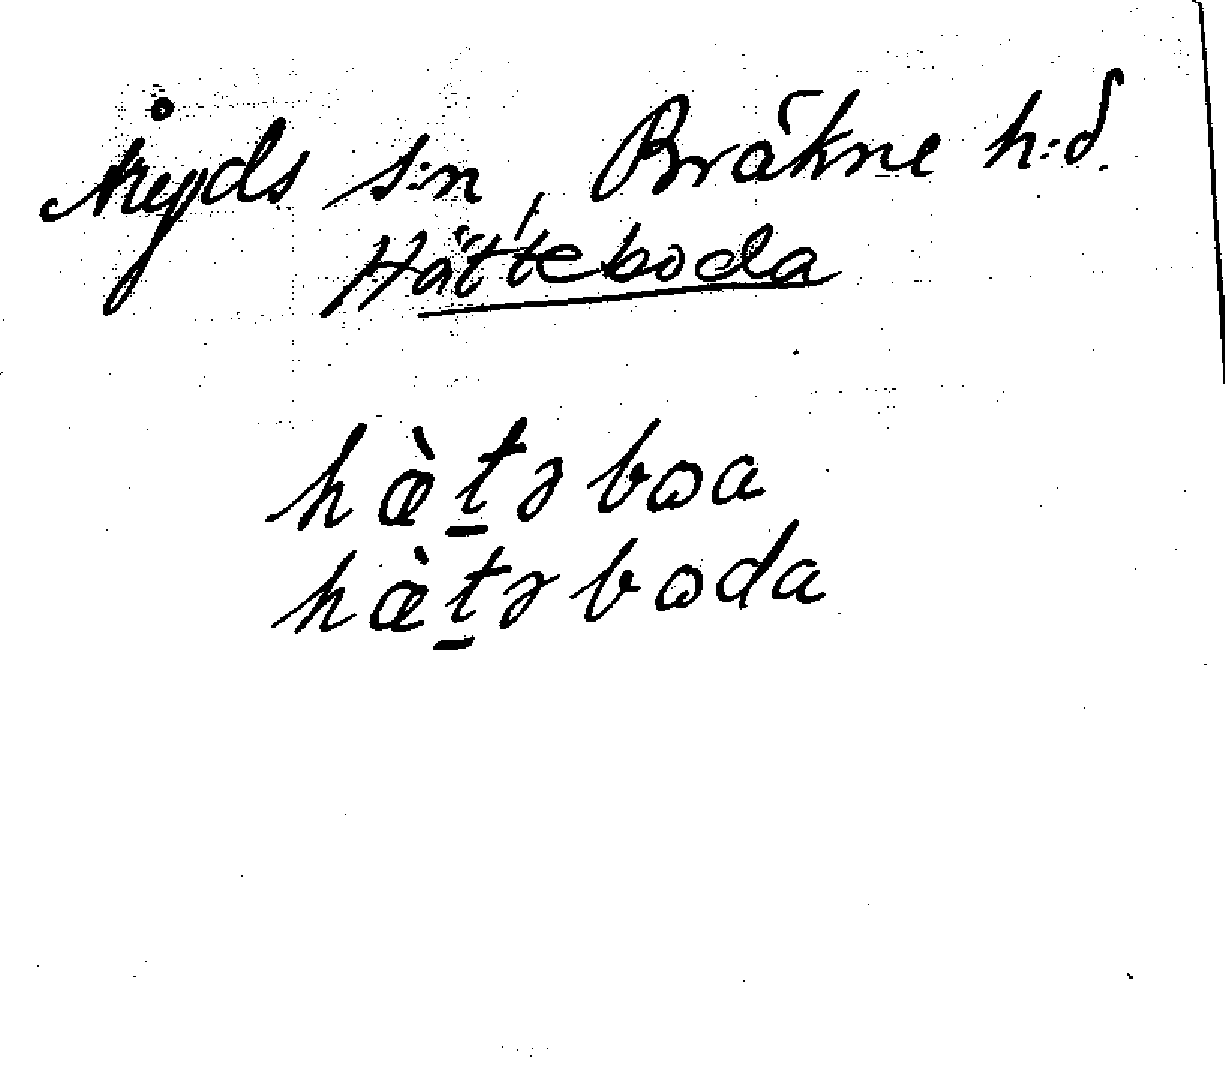 Åryds s:n, Bräkne h:d.
Hätteboda
hæ̀t̠ə bωa
hæ̀t̠ə bωda